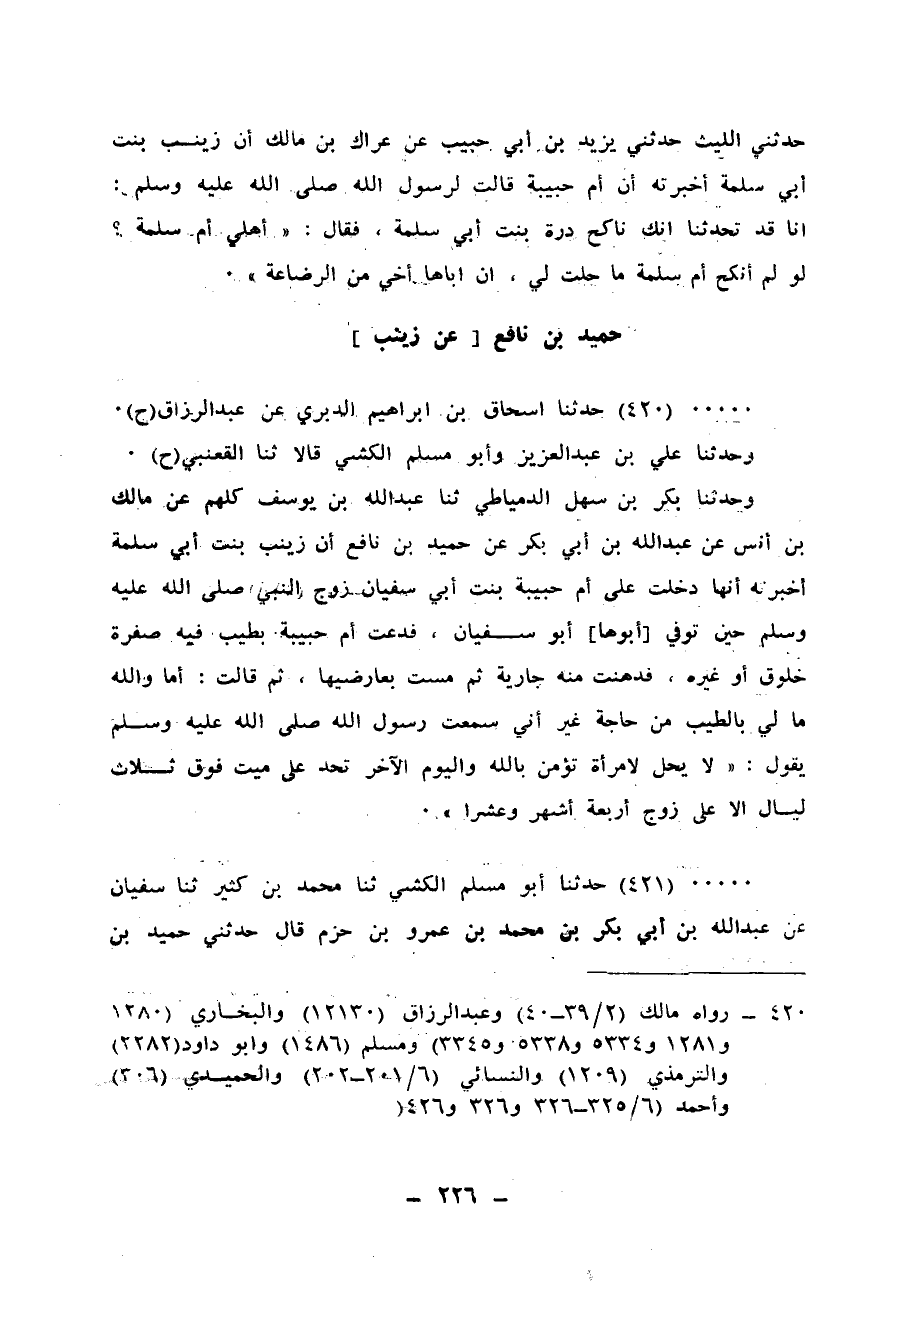 حدثني الليث حدثني يزيد بن أبي حبيب عن عراك بن مالك أن زينب بنت
أبي سلمة أخبرته أن أم حبيبة قالت لرسول الله صلى الله عليه وسلم :
انا قد تحدثنا انك ناكح درة بنت أبي سلمة ، فقال : « أهلي أم سلمة ؟
لو لم أنكح أم سلمة ما حلت لي ، ان اباها أخي من الرضاعة » ٠
حميد بن نافع [ عن زينب ]
٠٠٠٠٠ (٤٢٠) حدثنا اسحاق بن ابراهيم الدبري عن عبدالرزاق(ح)٠
وحدثنا علي بن عبدالعزيز وأبو مسلم الكشي قالا ثنا القعنبي(ح) ٠
وحدثنا بكر بن سهل الدمياطي ثنا عبدالله بن يوسف كلهم عن مالك
بن أنس عن عبدالله بن أبي بكر عن حميد بن نافع أن زينب بنت أبي سلمة
أخبرته أنها دخلت على أم حبيبة بنت أبي سفيان زوج النبي صلى الله عليه
وسلم حين توفي [أبوها] أبو سفيان ، فدعت أم حبيبة بطيب فيه صفرة
خلوق أو غيره ، فدهنت منه جارية ثم مست بعارضيها ، ثم قالت : أما والله
ما لي بالطيب من حاجة غير أني سمعت رسول الله صلى الله عليه وسلم
يقول : « لا يحل لامرأة تؤمن بالله واليوم الآخر تحد على ميت فوق ثلاث
ليال الا على زوج أربعة أشهر وعشرا » ٠
٠٠٠٠٠ (٤٢١) حدثنا أبو مسلم الكشي ثنا محمد بن كثير ثنا سفيان
عن عبدالله بن أبي بكر بن محمد بن عمرو بن حزم قال حدثني حميد بن
٤٢٠ ــ رواه مالك (٣٩/٢ــ٤٠) وعبدالرزاق (١٢١٣٠) والبخاري (١٢٨٠
و١٢٨١ و٥٣٣٤ و٥٣٣٨ و٥٣٤٥) ومسلم (١٤٨٦) وابو داود(٢٢٨٢)
والترمذي (١٢٠٩) والنسائي (٢٠١/٦ــ٢٠٢) والحميدي (٣٠٦)
وأحمد (٣٢٥/٦ــ٣٢٦ و٣٢٦ و٤٢٦(
ــ ٢٢٦ ــ